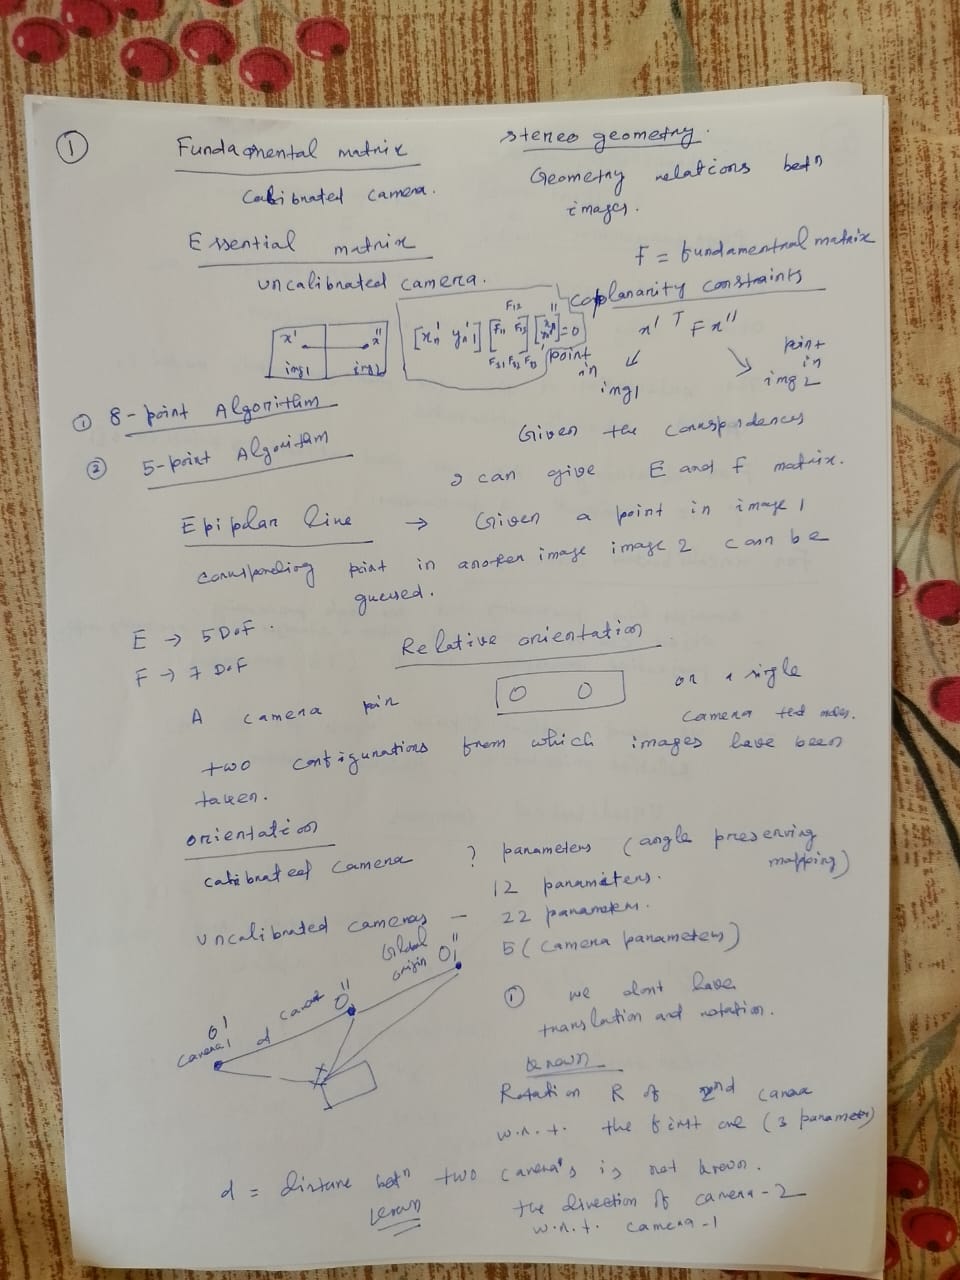 ①
Fundamental matrix
stereo geometry.
Calibrated camera.
Geometry relations betn
images.
Essential matrix
F = fundamental matrix
uncalibrated camera.
coplanarity constraints
x' x''
img1 img2
[x'n y'n 1] [F11 F12 F13 F31 F32 F33] [ ] = 0
x'T F x''
point in img1
point in img 2
① 8-point Algorithm
Given the correspondences
② 5-point Algorithm
I can give E and F matrix.
Epipolar line → Given a point in image 1
corresponding point in another image image 2 can be
guessed.
E → 5 DoF.
Relative orientation
F → 7 DoF
A camera pair or a single
camera
two configurations from which images have been
taken.
orientation
calibrated camera ? parameters (angle preserving
mapping)
12 parameters.
uncalibrated cameras - 22 parameters.
5 (camera parameters)
Global
origin O''1
O''
O'
camera1 d
① we dont have
translation and rotation.
known
Rotation R of 2nd camera
w.r.t. the first one (3 parameters)
d = distance betn two camera's is not known.
known
the direction of camera-2
w.r.t. camera-1